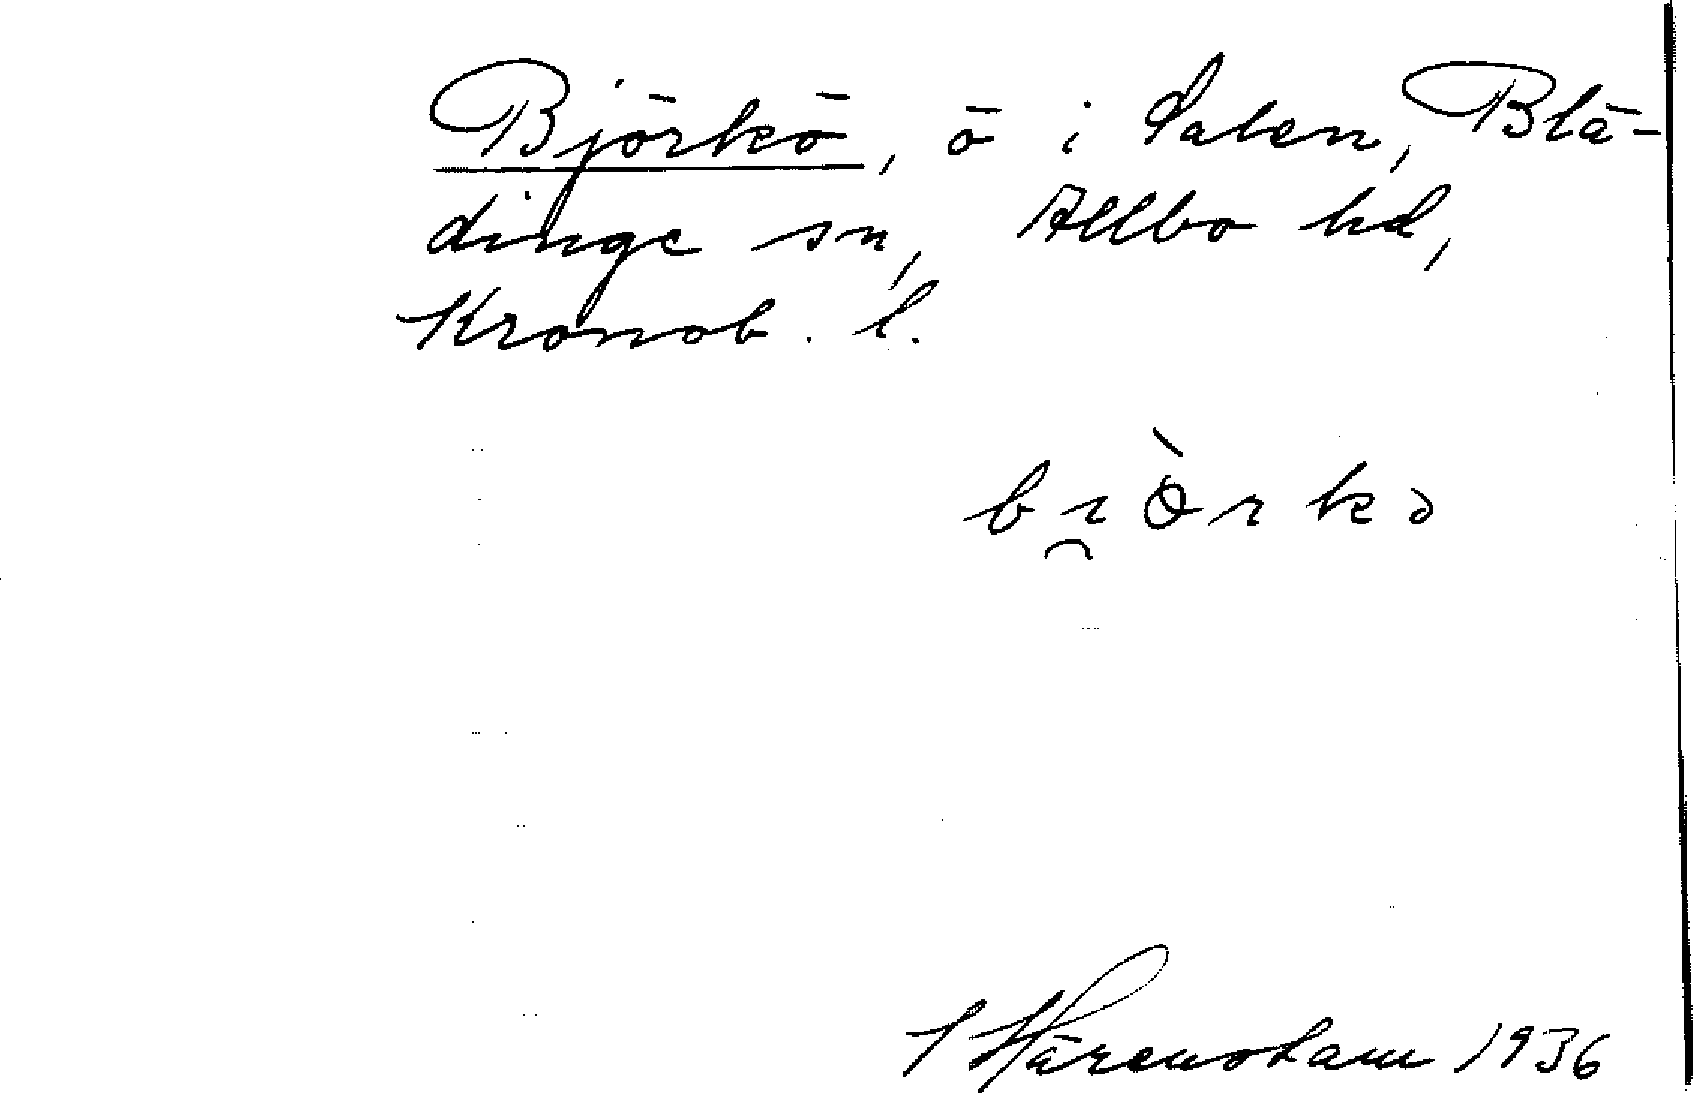 Björkö, ö i Salen, Blä-
dinge sn, Allbo hd,
Kronob. l.
Härenstam 1936